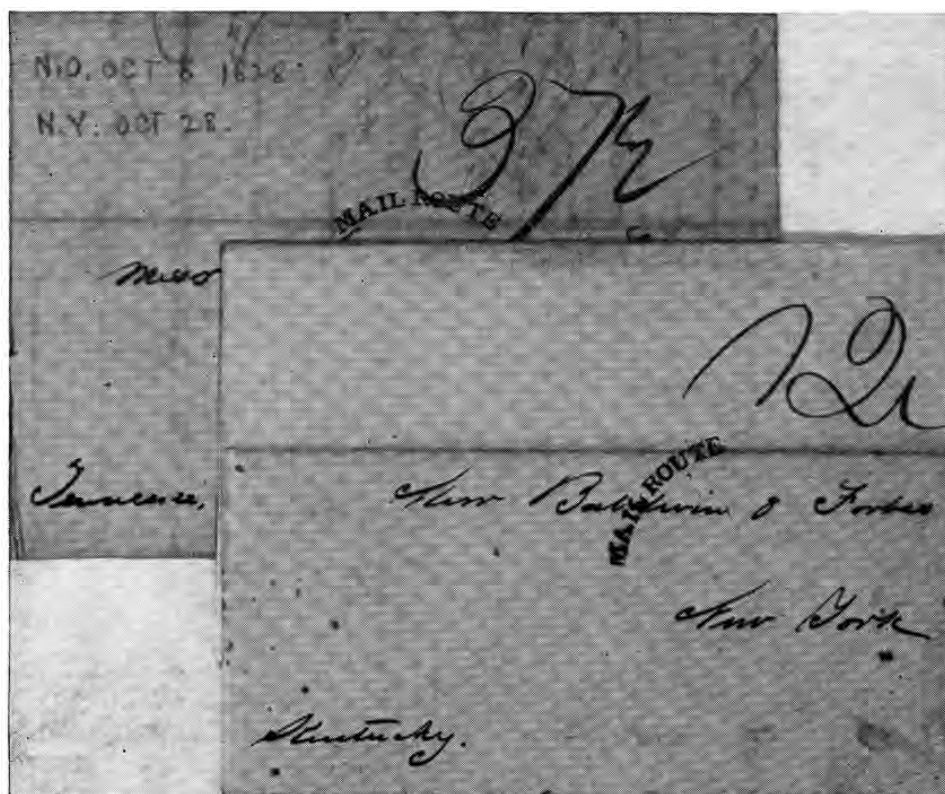 N.O. OCT 8 1828
N.Y. OCT 28.
37½
MAIL ROUTE
Tennessee,
MAIL ROUTE
Baldwin & Forbes
New York
Kentucky.